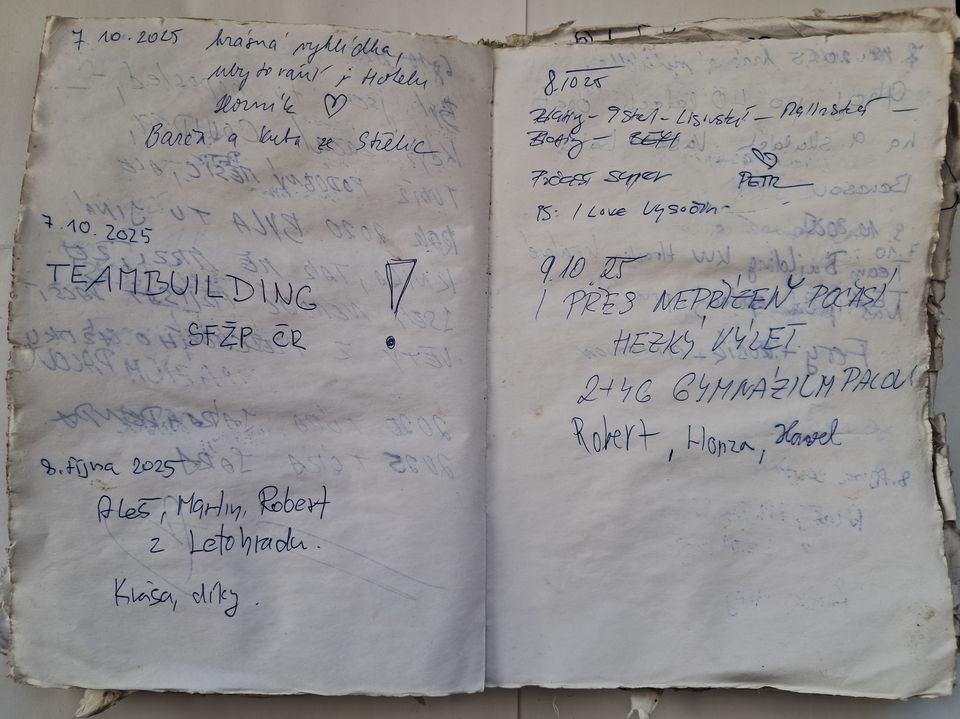 7.10.2025 krásná vyhlídka,
ubytování v Hotelu
Horník ♡
Barča a Kuba ze Střelic
7.10.2025
TEAMBUILDING !
SFŽP ČR
8. října 2025
Aleš, Martin, Robert
z Letohradu.
Krása, díky.
8.10 25
Počasí super PETR
PS: I Love Vysočin
9.10 25
I PŘES NEPŘÍZEŇ POČASÍ
HEZKÝ VÝLET
2+4G GYMNÁZIUM
Robert, Honza, Havel